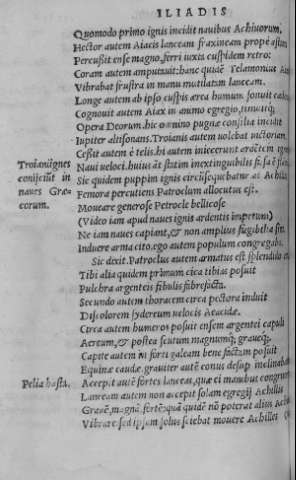 ILIADIS
Quomodo primo ignis incidit nauibus Achiuorum,
Hector autem Aiacis lanceam fraxineam prope astans
Percussit ense magno, ferri iuxta cuspidem retro:
Coram autem amputauit: hanc quidē Telamonius Aiax
Vibrabat frustra in manu mutilatam lanceam.
Longe autem ab ipso cuspis ærea humum sonuit
Cognouit autem Aiax in animo egregio, timuitq;
Opera Deorum, hic omnino pugnæ consilia incidit
Iupiter altisonans. Troianis autem uolebat uictoriam.
Cessit autem è telis. hi autem iniecerunt ardētem ignem
Troianignes
coniiciūt in
naues Græ-
corum.
Naui ueloci. huius aūt statim inextinguibilis
Sic quidem puppim ignis circūseque batur at Achilles
Femora percutiens Patroclum allocutus est.
Moueare generose Petrocle bellicose
(Video iam apud naues ignis ardentis impetum)
Ne iam naues capiant, & non amplius fugibilia sint
Induere arma cito. ego autem populum congregabo.
Sic dixit. Patroclus autem armatus est splendido
Tibi alia quidem primum circa tibias posuit
Pulchra argenteis fibulis fibrefacta.
Secundo autem thoracem circa pectora induit
Discolorem sydereum uelocis Aeacidæ.
Circa autem humeros posuit ensem argentei capuli
Aereum, & postea scutum magnumq; grauēq;.
Capite autem in forti galeam bene factam posuit
Equina caudæ. grauiter autē conus desup inclinabat
Pelia hasta.
Accepit autē fortes lanceas, quæ ei manibus congruebant
Lanceam autem non accepit solam egregij Achillis
Grauē, magnā fortē: quā quidē nō poterat alius
Vibrare sed ipsam solus sciebat mouere Achilles